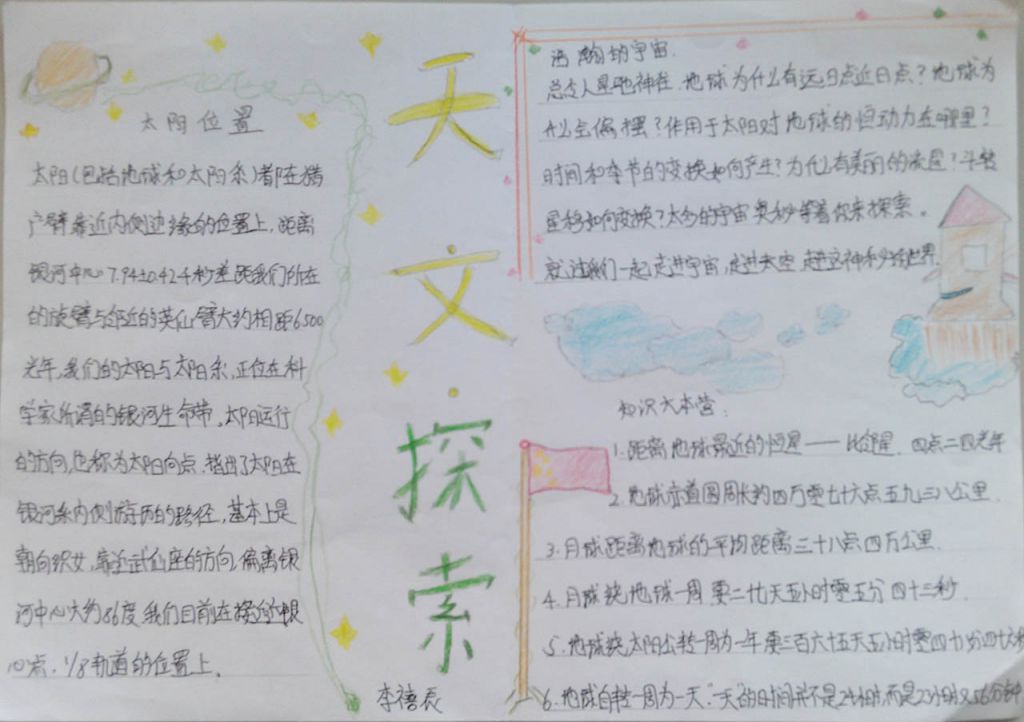 太阳位置
太阳(包括地球和太阳系)都在猎
户臂靠近内侧边缘的位置上,距离
银河中心7.94±0.424秒差距我们所在
的旋臂与邻近的英仙臂大约相距6500
光年,我们的太阳与太阳系,正位在科
学家所谓的银河生命带。太阳运行
的方向,也称为太阳向点,指出了太阳在
银河系内侧游历的路径,基本上是
朝向织女,靠近武仙座的方向,偏离银
河中心大约86度.我们目前在接近银
心点,1/8轨道的位置上。
天文·探索
李禧辰
浩瀚的宇宙.
总令人星驰神往.地球为什么有远日点近日点?地球为
什么会偏摆?作用于太阳对地球的恒动力在哪里?
时间和季节的变换如何产生?为什么有美丽的流星?斗转
星移如何变换?太多的宇宙奥秘等着你来探索。
就让我们一起,走进宇宙,走进太空 走进这神秘的世界
知识大本营:
1.距离地球最近的恒星——比邻星.四点二四光年
2.地球赤道圆周长约四万零七十六点五九三八公里.
3.月球距离地球的平均距离三十八点四万公里.
4.月球绕地球一周要二十七天五小时零五分四十三秒.
5.地球绕太阳公转一周为一年要三百六十五天五小时零四十八分四十六秒
6.地球自转一周为一天."一天的时间并不是24小时,而是23小时又56分钟